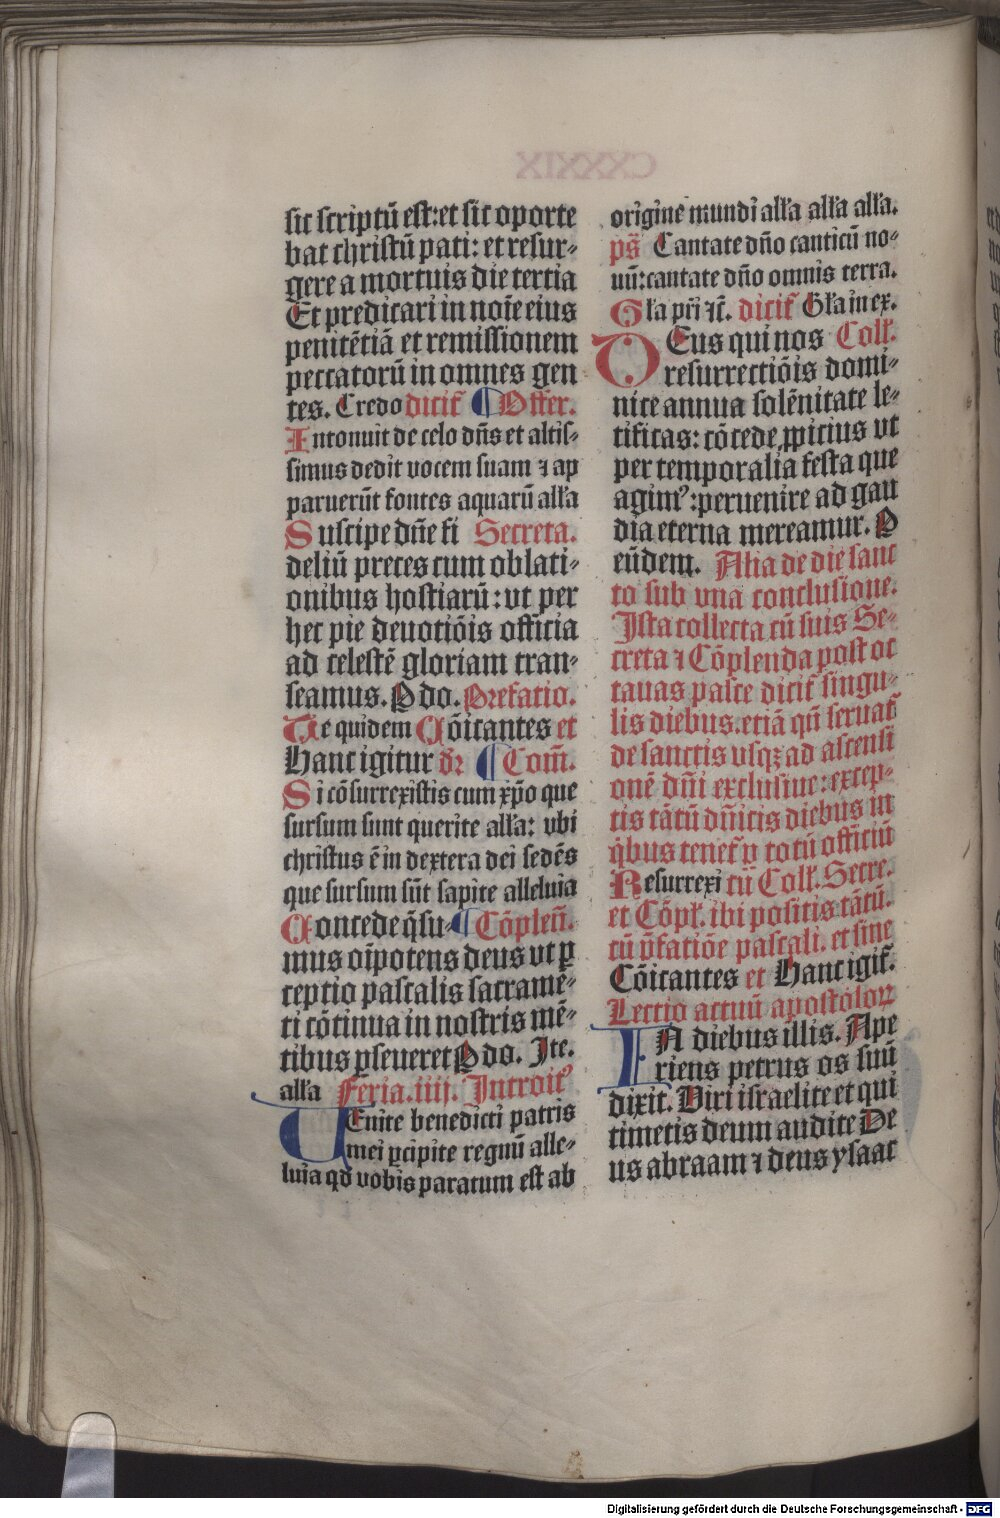 sic scriptū est: et sic oporte
bat christū pati: et resur-
gere a mortuis die tertia
Et predicari in noīe eius
penitētiā et remissionem
peccatorū in omnes gen
tes. Credo dicit̄ ¶ Offer.
Intonuit de celo dn̄s et altis-
simus dedit vocem suam ⁊ ap
paruerūt fontes aquarū all'a
Suscipe dn̄e fi Secreta.
deliū preces cum oblati-
onibus hostiarū: vt per
hec pie deuotiōis officia
ad celestē gloriam tran-
seamus. P do. Prefatio.
Te quidem Cōicantes et
Hanc igitur dr̄ ¶ Com̄.
Si cōsurrexistis cum xp̄o que
sursum sunt querite all'a: vbi
christus ē in dextera dei sedēs
que sursum sūt sapite alleluia
Concede q̄su- ¶ Cōplen̄.
mus oīpotens deus vt ꝑ
ceptio pascalis sacramē-
ti cōtinua in nostris mē-
tibus ꝑseueret P do. Ite.
all'a Feria .iiij. Introitꝰ
Uenite benedicti patris
mei ꝑcipite regnū alle-
luia qd̄ vobis paratum est ab
CXXXIX
origine mundi all'a all'a all'a.
ps̄ Cantate dn̄o canticū no-
uū: cantate dn̄o omnis terra.
Gl'a pr̄i ⁊c̄. dicit̄ Gl'a in ex.
Deus qui nos Coll'.
resurrectiōis domi-
nice annua solēnitate le-
tificas: cōcede ꝓpicius vt
per temporalia festa que
agimꝰ: peruenire ad gau
dia eterna mereamur. P
eūdem. Alia de die sanc
to sub vna conclusione.
Ista collecta cū suis Se-
creta ⁊ Cōplenda post oc
tauas pasce dicit̄ singu-
lis diebus. etiā qn̄ seruat̄
de sanctis vsqꝫ ad ascensi
onē dn̄i exclusiue: excep-
tis tātū dn̄icis diebus in
q̄bus tenet̄ ꝑ totū officiū
Resurrexi cū Coll'. Secre.
et Cōpl'. ibi positis tātū.
cū p̄fatiōe pascali. et sine
Cōicantes et Hanc igit̄.
Lectio actuū apostoloꝝ
IN diebus illis. Ape
riens petrus os suū
dixit. Viri israelite et qui
timetis deum audite De
us abraam ⁊ deus ysaac
Digitalisierung gefördert durch die Deutsche Forschungsgemeinschaft - DFG